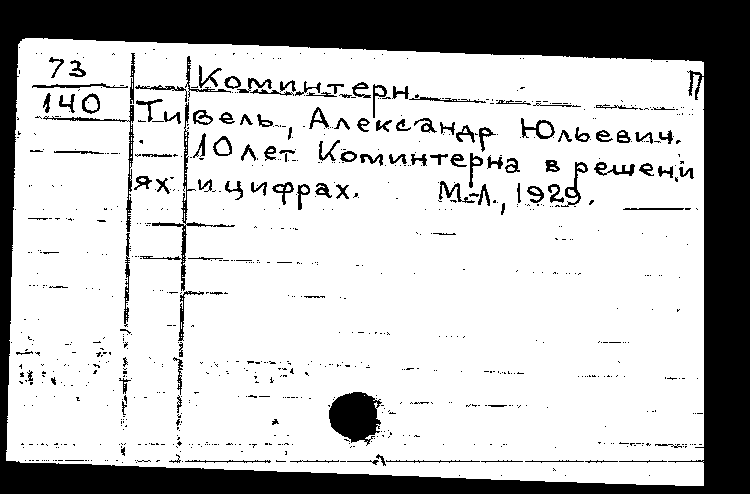 73
140
Коминтерн.
П
Тивель, Александр Юльевич.
10 лет Коминтерна в решени
ях и цифрах. М.-Л., 1929.